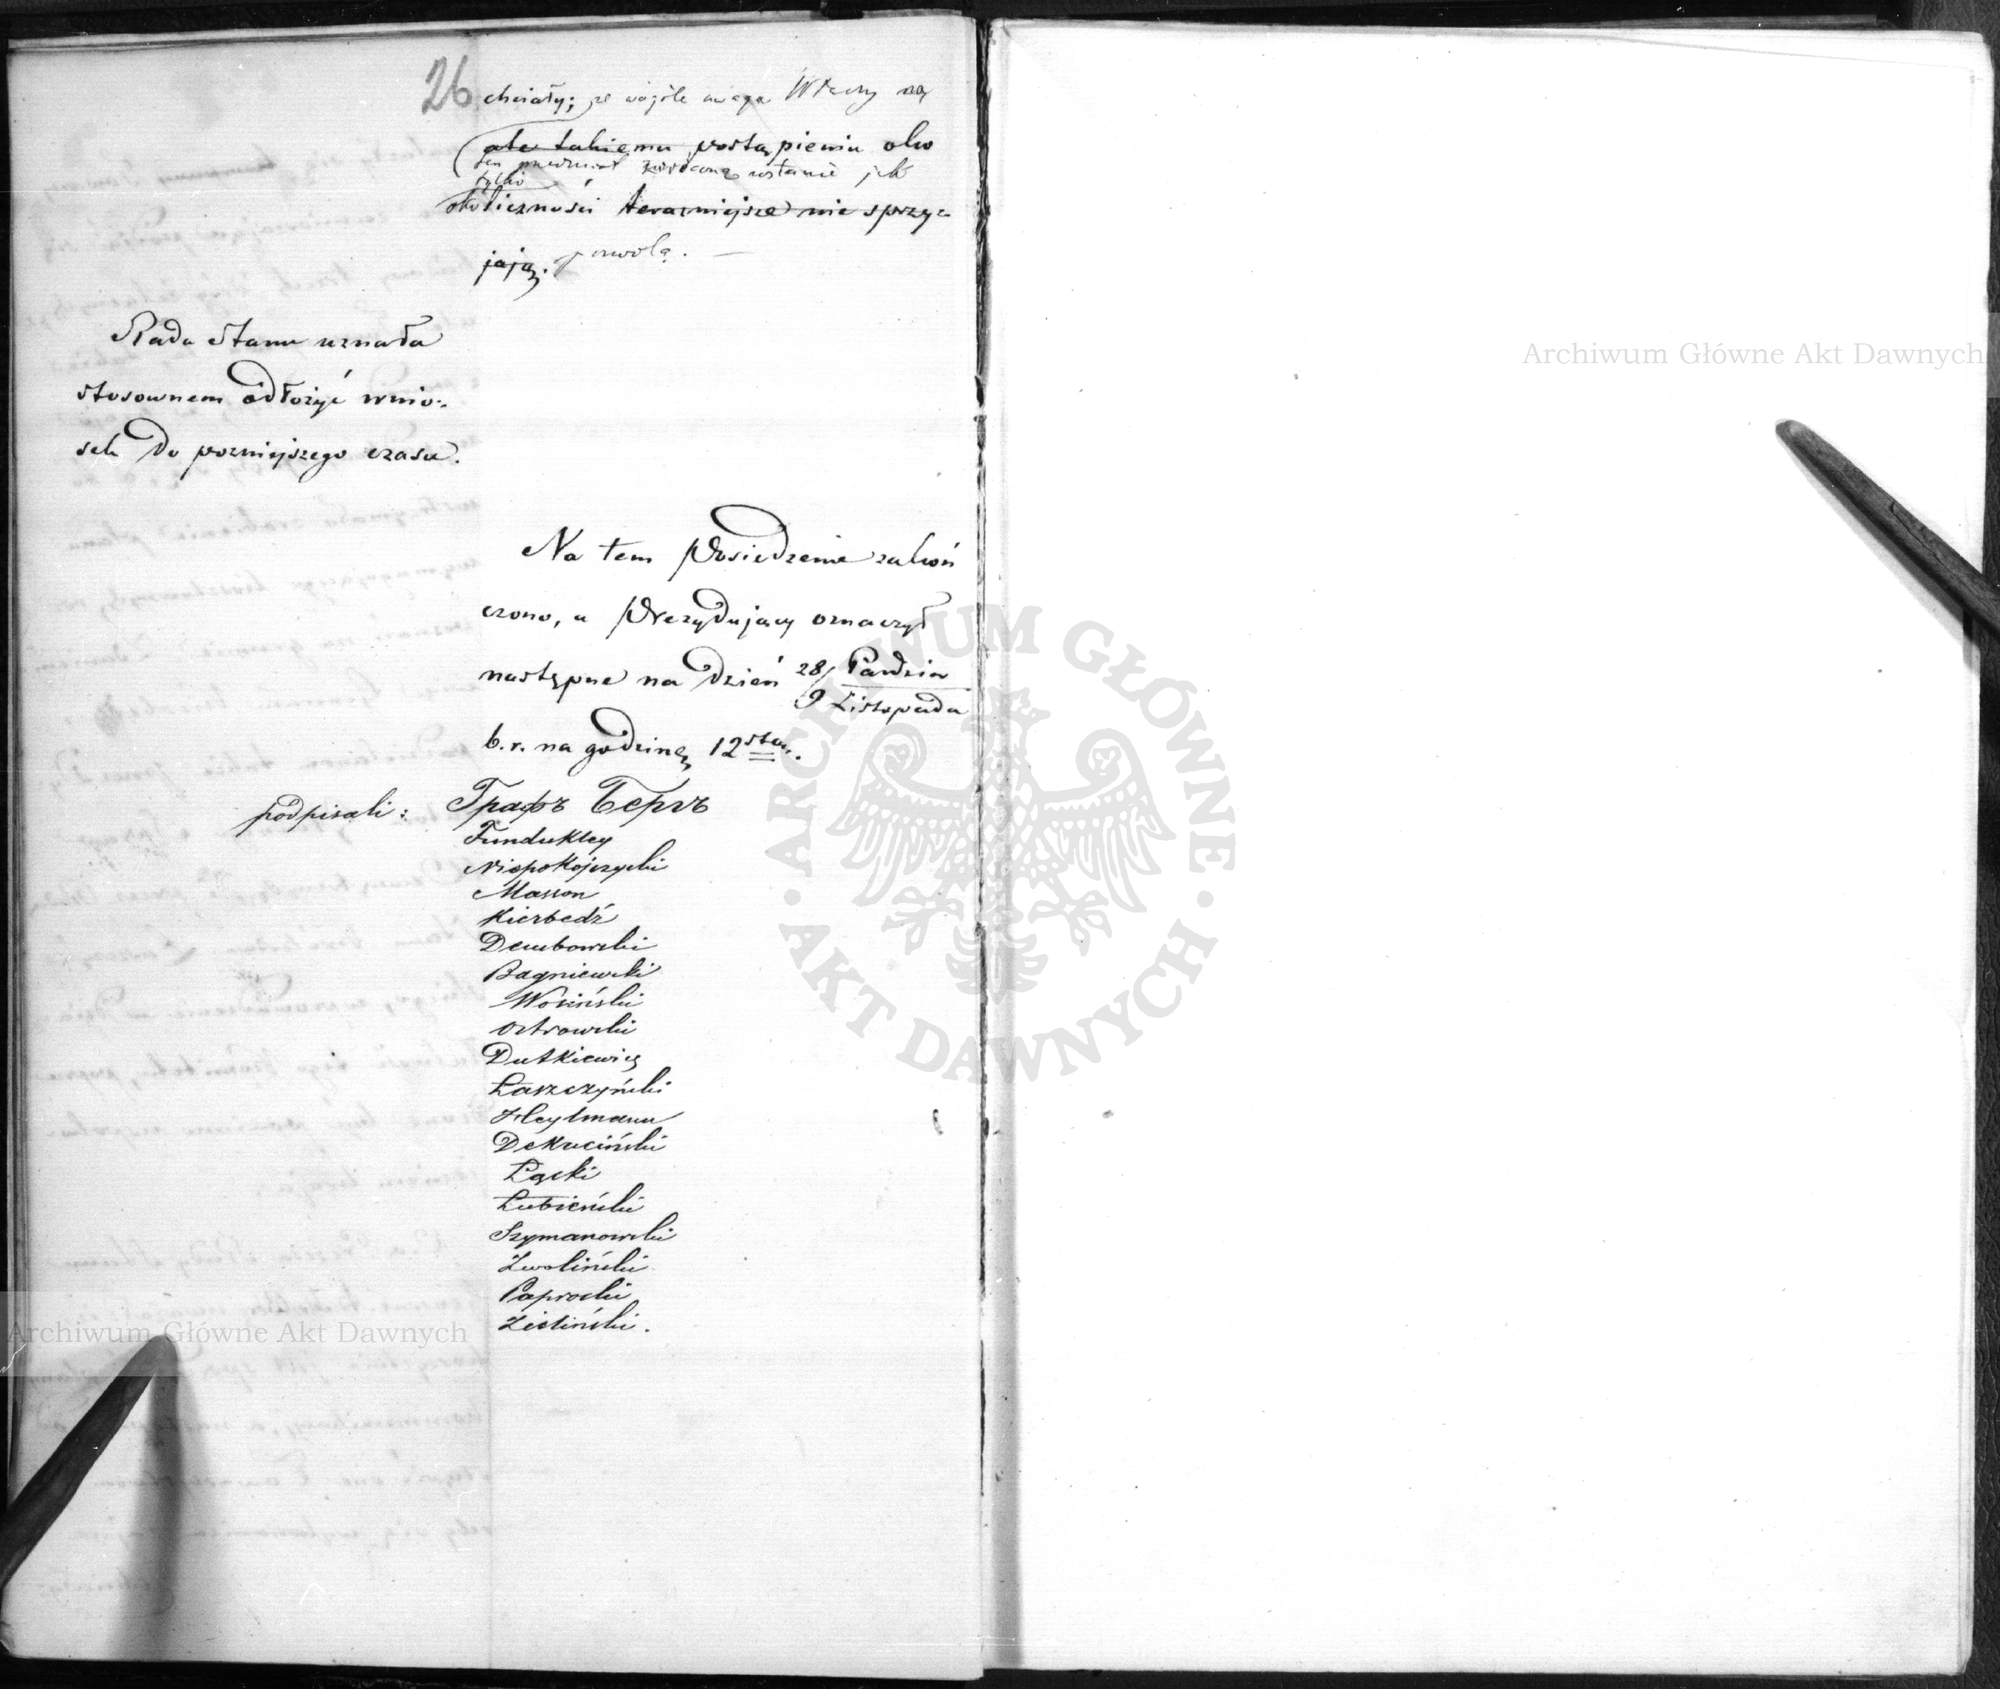 26
chciały; że wogóle uwaga Władzy na
ale takiemu postąpieniu oko
ten przedmiot zwróconą zostanie jak
tylko
okoliczności teraźniejsze nie sprzy-
jają. pozwolą. —
Rada Stanu uznała
stosownem odłożyć wnio-
sek do pozniejszego czasu.
Na tem Posiedzenie zakoń
czono, a Prezydujący oznaczył
następne na dzień 28/9 Paździer / Listopada
b.r. na godzinę 12stą.
podpisali: Графъ Бергъ
Fundukley
Niepokojczycki
Masson
Kierbedź
Dembowski
Bagniewski
Wosiński
Ostrowski
Dutkiewicz
Łaszczyński
Heylmann
Dekuciński
Łącki
Łubieński
Szymanowski
Zwoliński
Paprocki
Zieliński.
Archiwum Główne Akt Dawnych
ARCHIWUM GŁÓWNE
· AKT DAWNYCH ·
Archiwum Główne Akt Dawnych